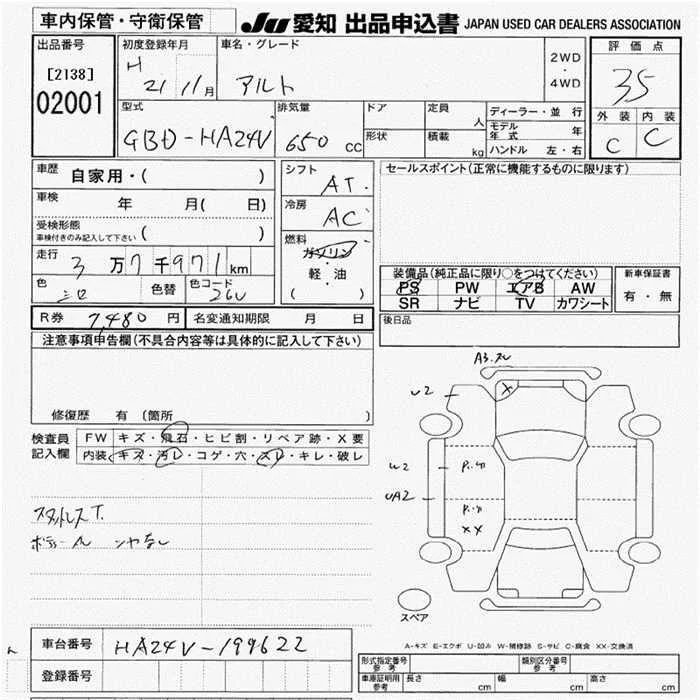 車内保管・守衛保管
JU 愛知 出品申込書 JAPAN USED CAR DEALERS ASSOCIATION
出品番号
[2138]
02001
初度登録年月
H
21 11月
車名・グレード
アルト
2WD
・
4WD
評価点
35
外装 内装
C C
型式
GBD-HA24V
排気量
650 CC
ドア
形状
定員 人
積載 kg
ディーラー・並行
モデル年式 年
ハンドル 左・右
車歴 自家用・( )
車検 年 月( 日)
受検形態
車検付きのみ記入して下さい ( )
走行 3万7千971km
色
色替
色コード
26U
シフト
AT.
冷房
AC
燃料
ガソリン
軽・油
( )
セールスポイント(正常に機能するものに限ります)
装備品(純正品に限り○をつけてください)
PS PW エアB AW
SR ナビ TV カワシート
新車保証書
有・無
R券 7,480 円 名変通知期限 月 日
後日品
注意事項申告欄(不具合内容等は具体的に記入して下さい)
修復歴 有(箇所 )
検査員
記入欄
FW キズ・飛石・ヒビ割・リペア跡・X要
内装 キズ・汚レ・コゲ・穴・スレ・キレ・破レ
スタットレスT.
A3.スレ
U2
X
W2
UA2
XX
スペア
A-キズ E-エクボ U-凹み W-補修跡 S-サビ C-腐食 XX-交換済
車台番号 HA24V-199622
登録番号
形式指定番号
参考
類別区分番号
参考
車庫証明用
参考
長さ cm 幅 cm 高さ cm